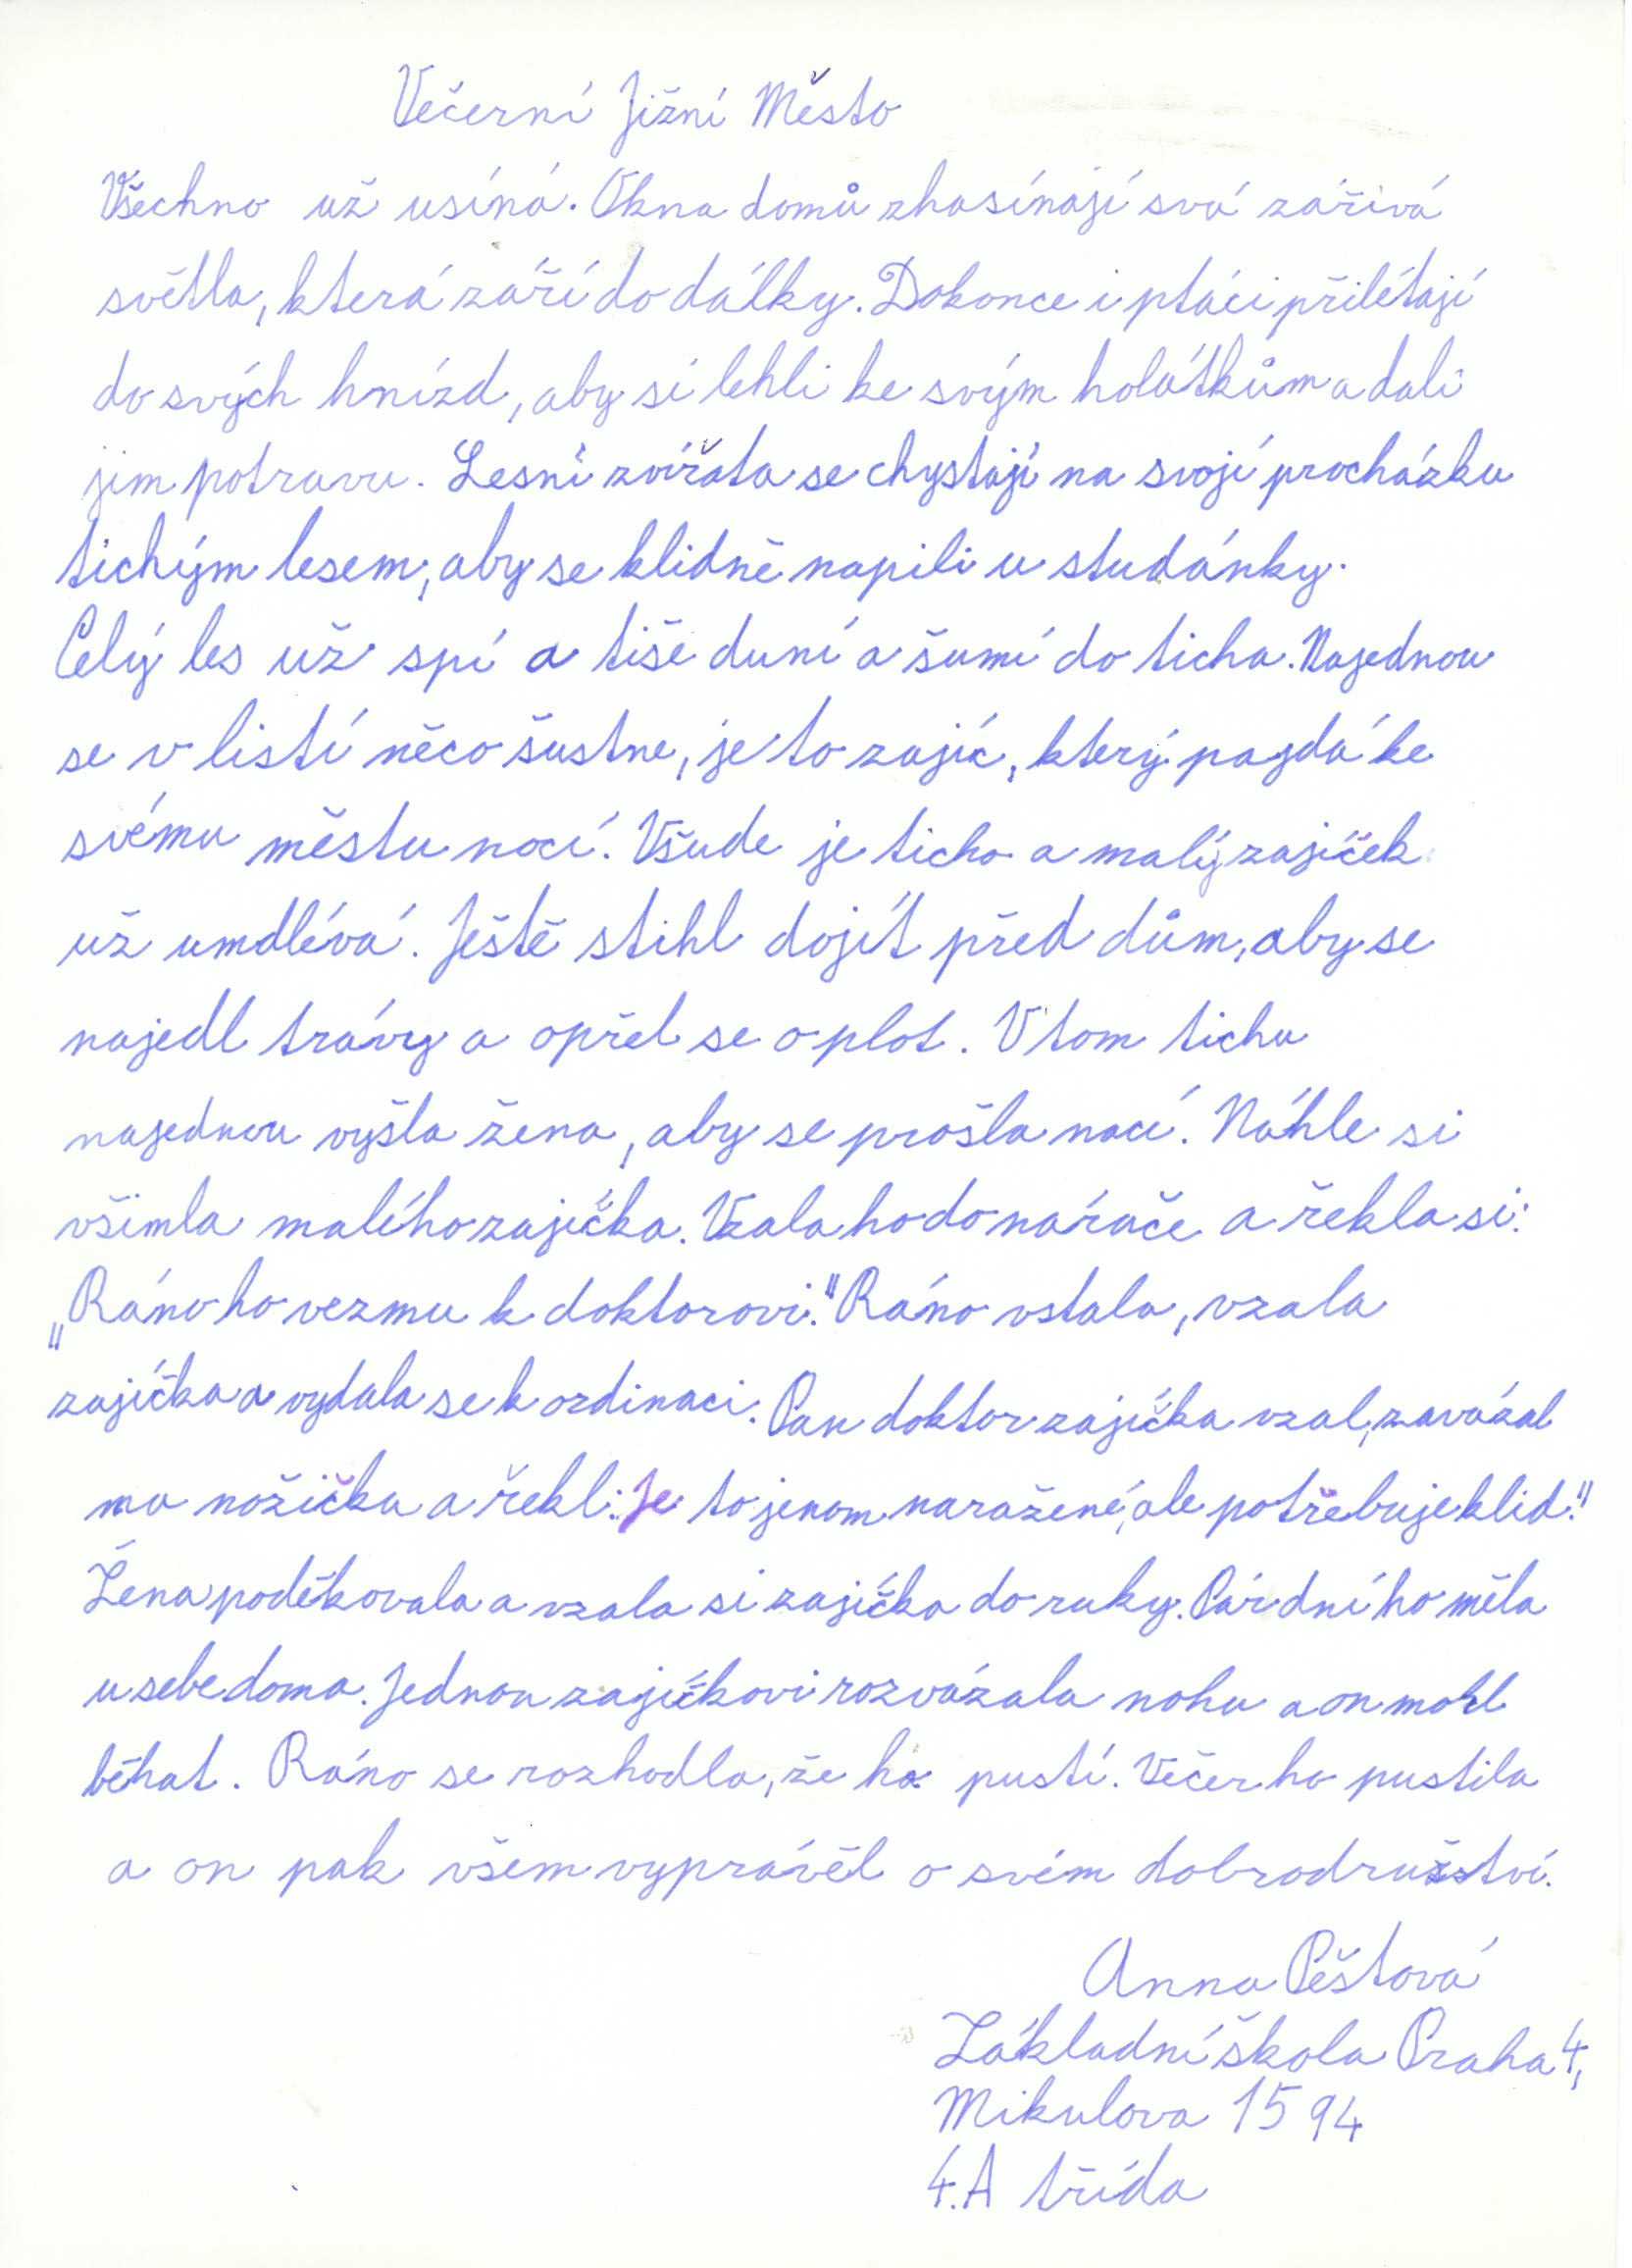 Večerní Jižní Město
Všechno už usíná. Okna domů zhasínají svá zářivá
světla, která září do dálky. Dokonce i ptáci přilétají
do svých hnízd, aby si lehli ke svým holátkům a dali
jim potravu. Lesní zvířata se chystají na svojí procházku
tichým lesem, aby se klidně napili u studánky.
Celý les už spí a tiše duní a šumí do ticha. Najednou
se v listí něco šustne, je to zajíc, který pajdá ke
svému městu nocí. Všude je ticho a malý zajíček
už umdlévá. Ještě stihl dojít před dům, aby se
najedl trávy a opřel se o plot. V tom tichu
najednou vyšla žena, aby se prošla nocí. Náhle si
všimla malého zajíčka. Vzala ho do náruče a řekla si:
„Ráno ho vezmu k doktorovi." Ráno vstala, vzala
zajíčka a vydala se k ordinaci. Pan doktor zajíčka vzal, zavázal
mu nožičku a řekl: Je to jenom naražené, ale potřebuje klid."
Žena poděkovala a vzala si zajíčka do ruky. Pár dní ho měla
u sebe doma. Jednou zajíčkovi rozvázala nohu a on mohl
běhat. Ráno se rozhodla, že ho pustí. Večer ho pustila
a on pak všem vyprávěl o svém dobrodružství.
Anna Pěštová
Základní škola Praha 4,
Mikulova 1594
4.A třída